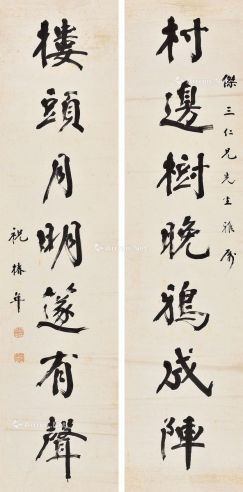 傑三仁兄先生雅屬
村邊樹晚鴉成陣
樓頭月明篴有聲
祝椿年